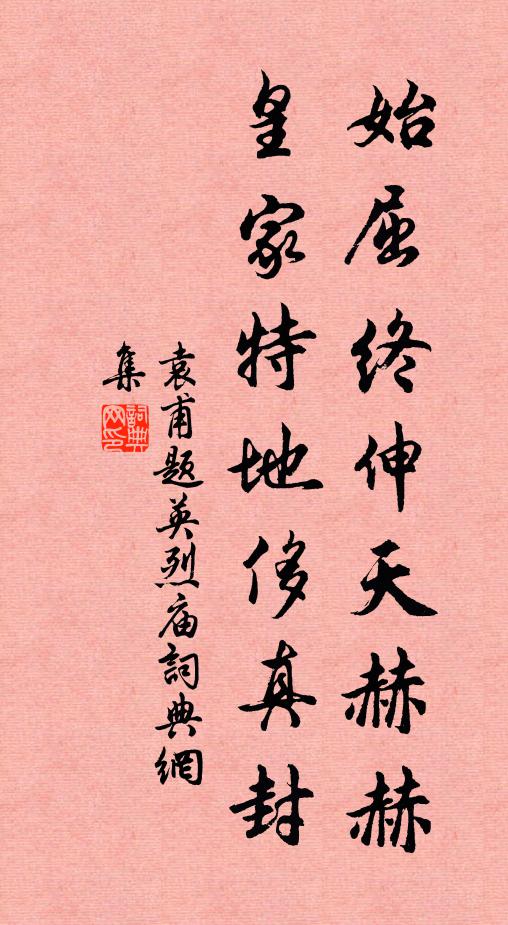 始屈终伸天赫赫
皇家特地侈真封
袁甫题英烈庙詞典網
集
詞典网印